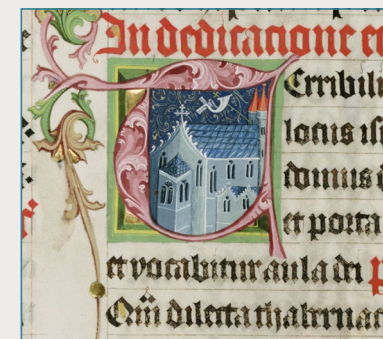 In dedicatione ec
Terribili
locus ist
domus d
et porta
et vocabitur aula dei p
Qm̄ dilecta thabernac